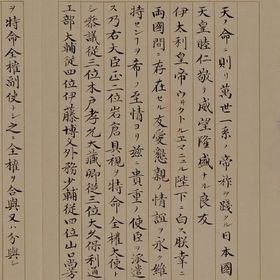 天ノ命ニ則リ萬世一系ノ帝祚ヲ踐タル日本國
天皇睦仁敬テ威望隆盛ナル良友
伊太利皇帝ウヰクトルエマニュル陛下ニ白ス朕幸ニ
兩國間ニ存在セル友愛懇親ノ情誼ヲ永久維
持センヿヲ希フノ至情ヨリ茲ニ貴重ノ使臣ヲ派遣
ス乃右大臣正二位岩倉具視ヲ特命全權大使ト
シ參議從三位木戸孝允大藏卿從三位大久保利通
工部大輔從四位伊藤博文外務少輔從四位山口尚芳
ヲ特命全權副使トシ之ニ全權ヲ合與又ハ分與シ